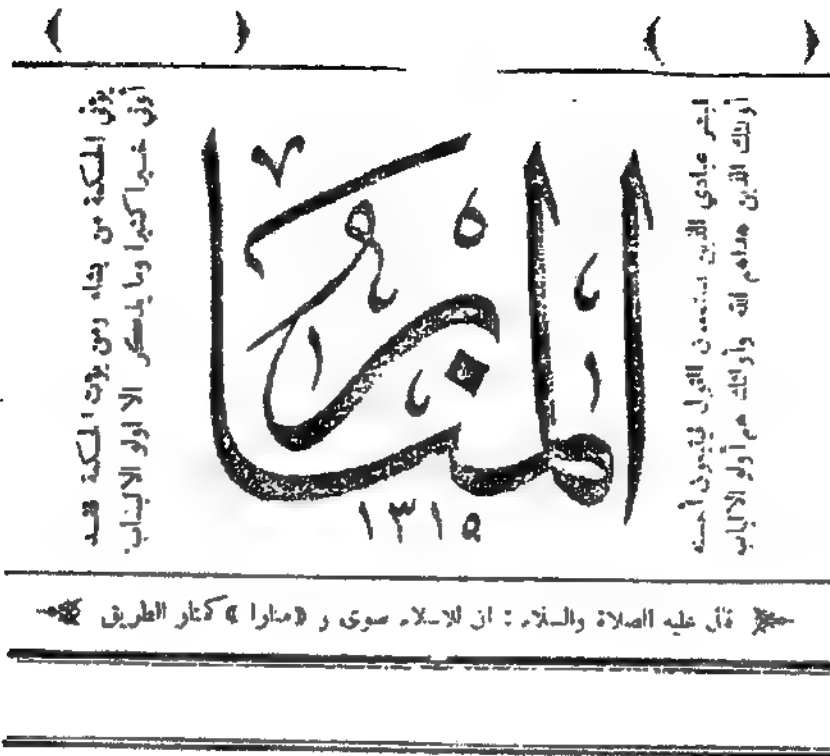 فبشر عبادي الذين يستمعون القول فيتبعون أحسنه
أولئك الذين هداهم الله وأولئك هم أولو الالباب
المنار
١٣١٥
يؤتي الحكمة من يشاء ومن يؤت الحكمة فقد
أوتي خيرا كثيرا وما يذكر الا اولو الالباب
قال عليه الصلاة والسلام : ان للاسلام صوى و «منارا» كمنار الطريق